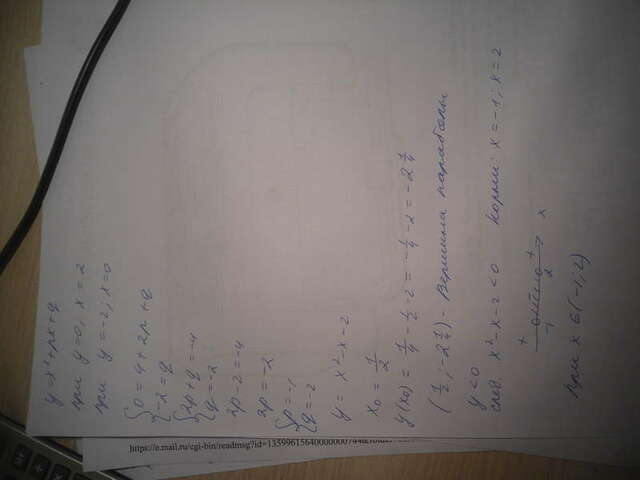 y = x² + px + q
при y=0, x = 2
при y = -2, x=0
{0 = 4 + 2p + q
{-2 = q
{2p + q = -4
{q = -2
2p - 2 = -4
2p = -2
{p = -1
{q = -2
y = x² - x - 2
x₀ = 1/2
y(x₀) = 1/4 - 1/2 - 2 = -1/4 - 2 = -2 1/4
(1/2; -2 1/4) - Вершина параболы
y < 0
след. x² - x - 2 < 0 Корни: x = -1; x = 2
+ - +
-1 2 x
при x ∈ (-1; 2)
https://e.mail.ru/cgi-bin/readmsg?id=135996156400000007